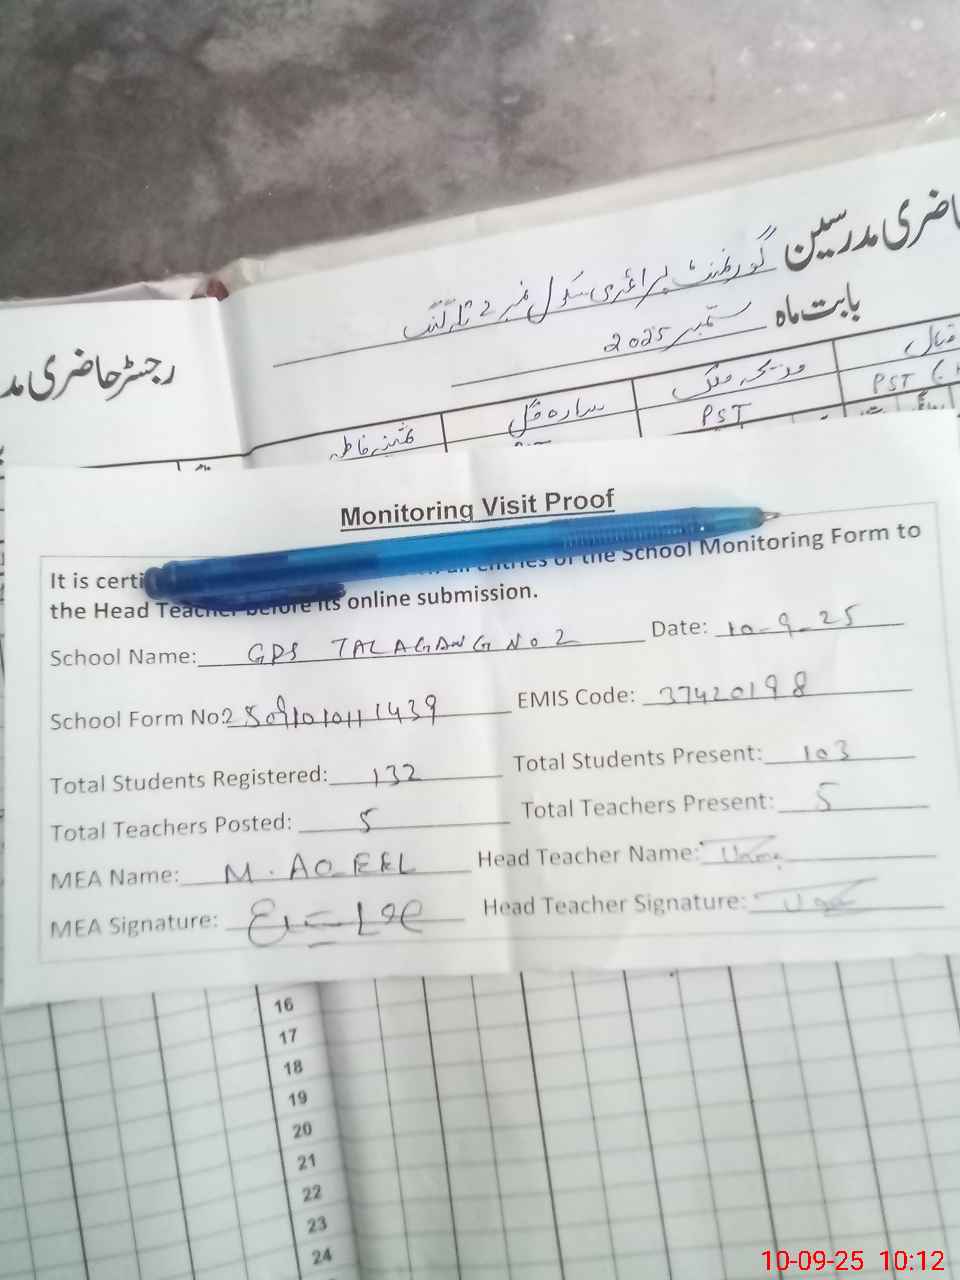 حاضری مدرسین گورنمنٹ پرائمری سکول نمبر 2 تلہ گنگ
بابت ماہ ستمبر 2025
رجسٹر حاضری
مدیحہ ملک سارہ گل فاطمہ
PST PST
Monitoring Visit Proof
It is certi all entries of the School Monitoring Form to
the Head Teacher before its online submission.
School Name: GPS TALAGANG NO 2 Date: 10-9-25
School Form No: EMIS Code: 37420198
Total Students Registered: 132 Total Students Present: 103
Total Teachers Posted: 5 Total Teachers Present: 5
MEA Name: M. AQEEL Head Teacher Name:
MEA Signature: Head Teacher Signature:
16
17
18
19
20
21
22
23
24
10-09-25 10:12